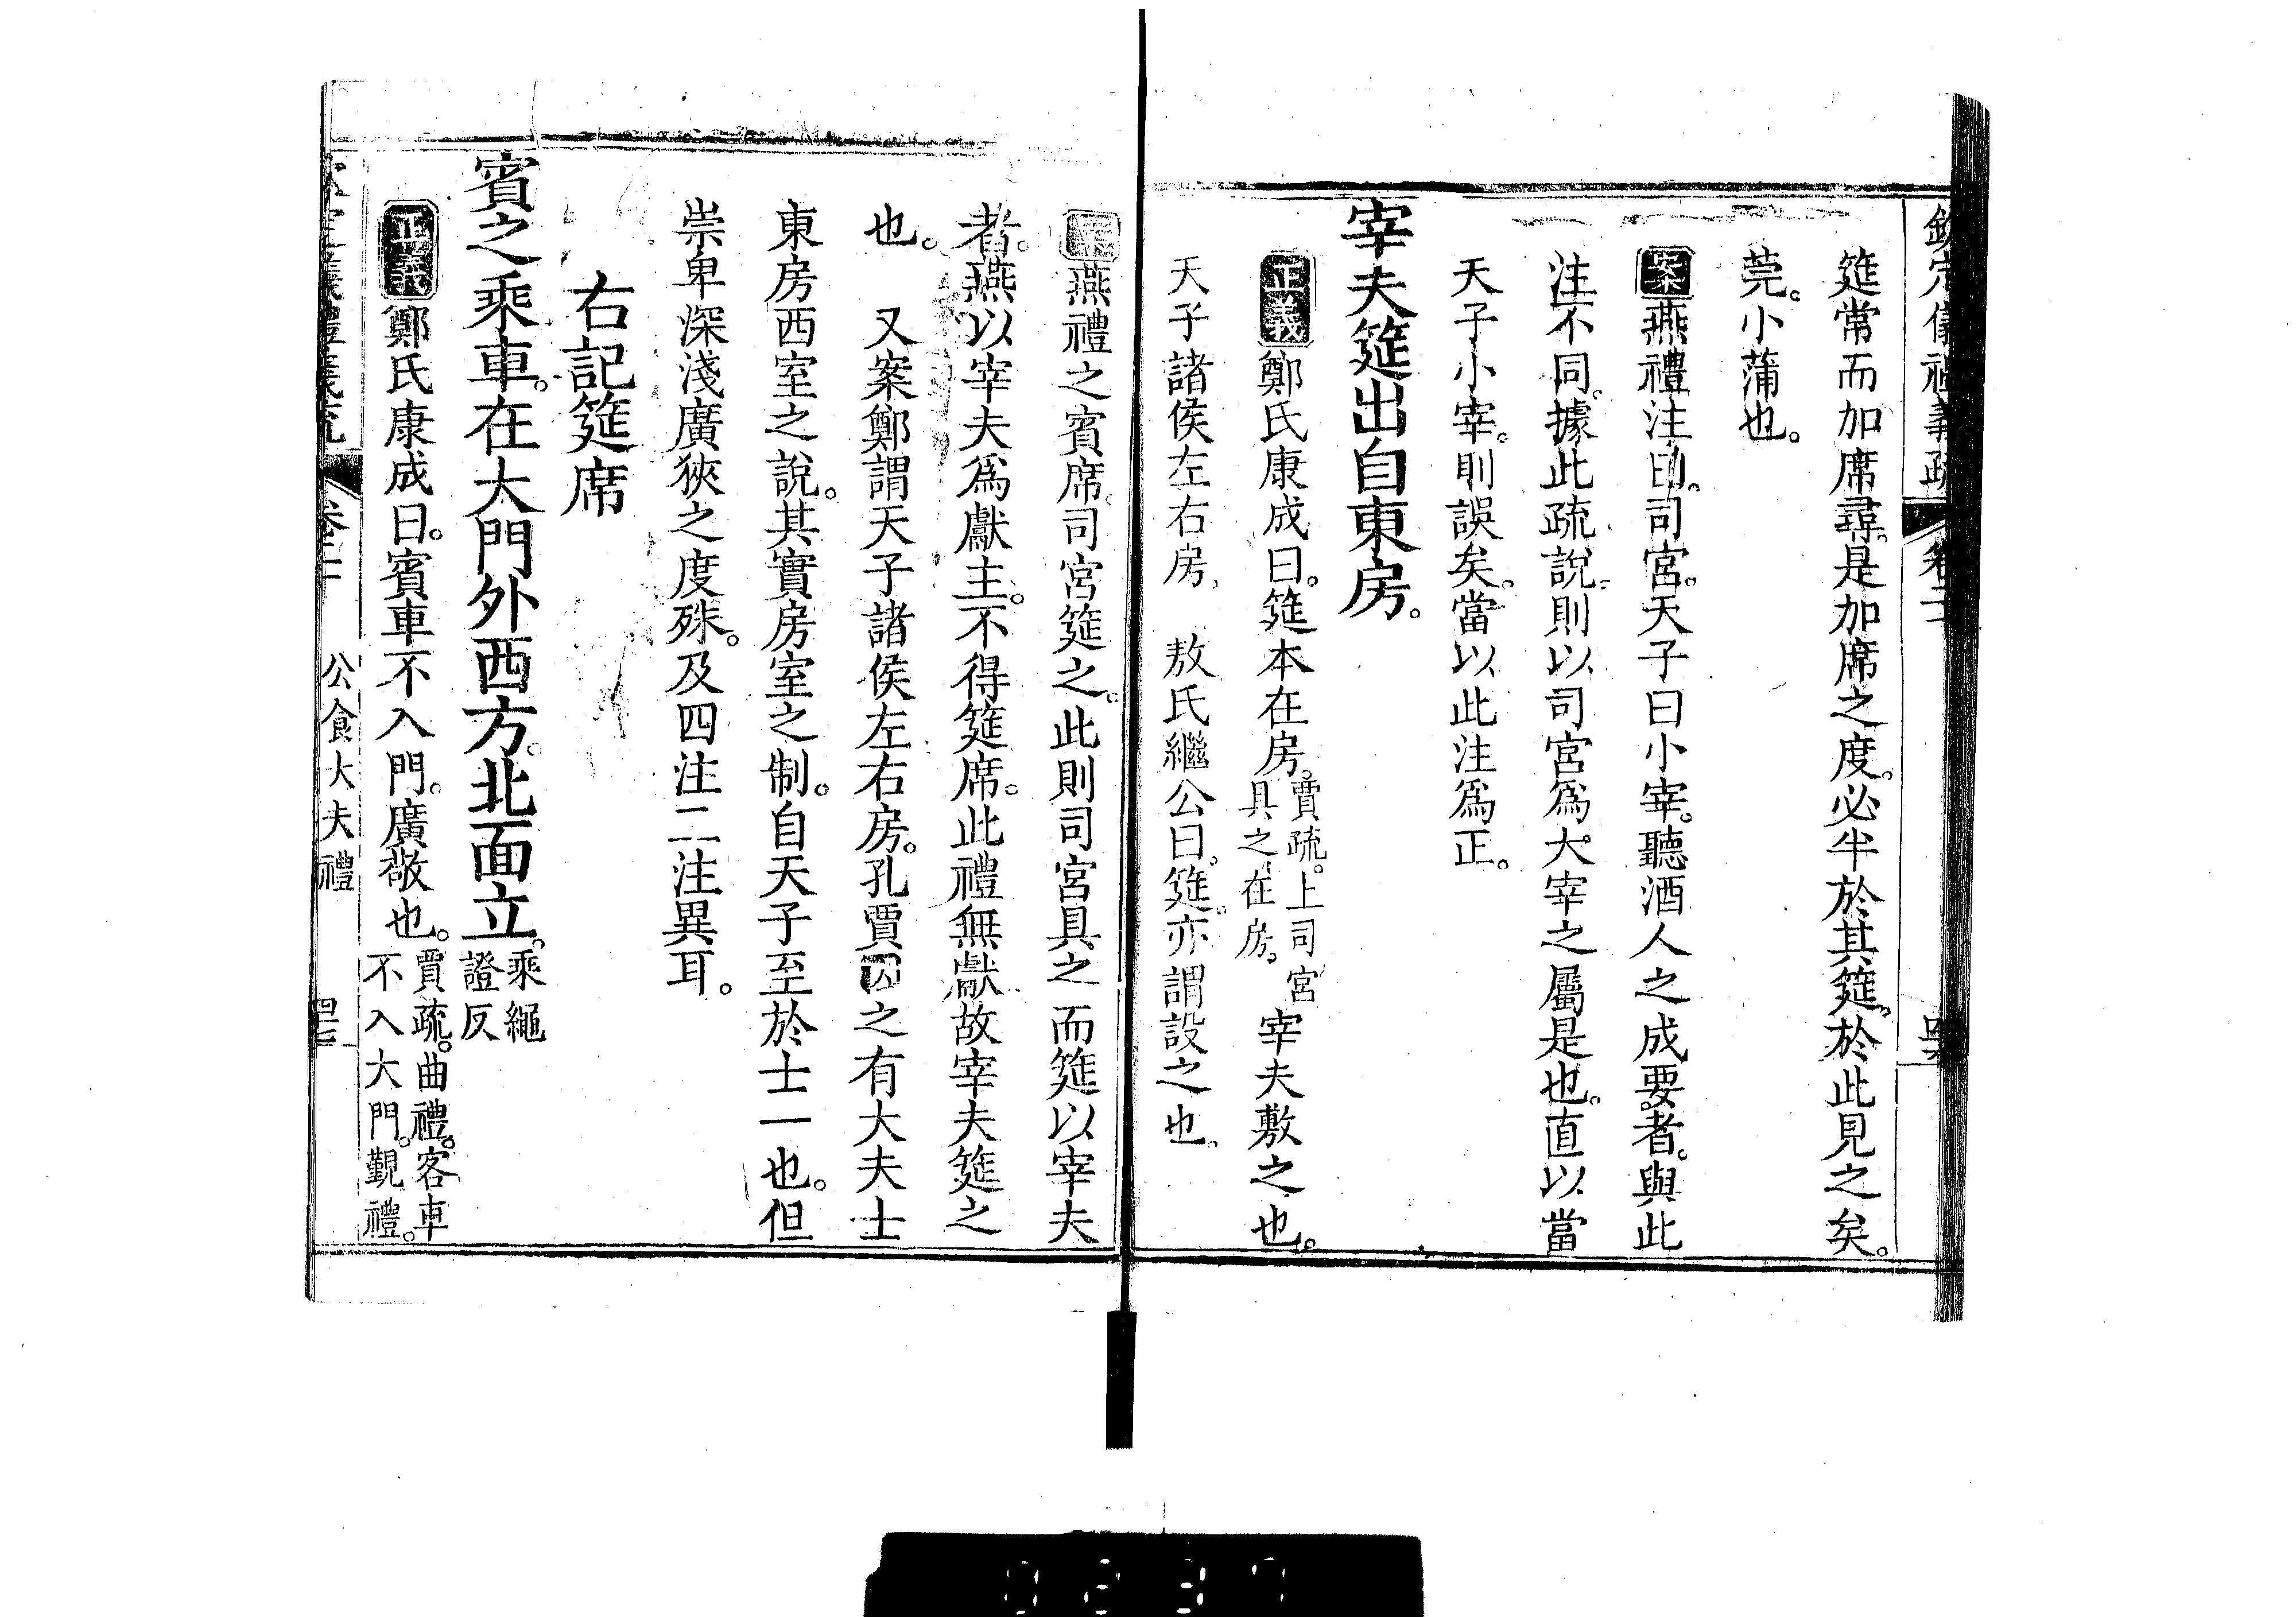 欽定儀禮義疏 卷二十
筵常而加席尋。是加席之度。必半於其筵。於此見之矣。
莞。小蒲也。
案燕禮注曰。司宮。天子曰小宰。聽酒人之成要者。與此
注不同。據此疏說。則以司宮爲大宰之屬是也。直以當
天子小宰。則誤矣。當以此注爲正。
宰夫筵出自東房。
正義鄭氏康成曰。筵本在房。賈疏。上司宮具之在房。宰夫敷之也。
天子諸侯左右房。 敖氏繼公曰。筵。亦謂設之也。
案燕禮之賓席。司宮筵之。此則司宮具之而筵以宰夫
者。燕以宰夫爲獻主。不得筵席。此禮無獻故宰夫筵之
也。 又案鄭謂天子諸侯左右房。孔賈因之有大夫士
東房西室之說。其實房室之制。自天子至於士一也。但
崇卑深淺廣狹之度殊。及四注二注異耳。
右記筵席
賓之乘車。在大門外西方。北面立。乘繩證反
正義鄭氏康成曰。賓車不入門。廣敬也。賈疏。曲禮。客車不入大門。覲禮。
欽定儀禮義疏 卷二十 公食大夫禮 四七